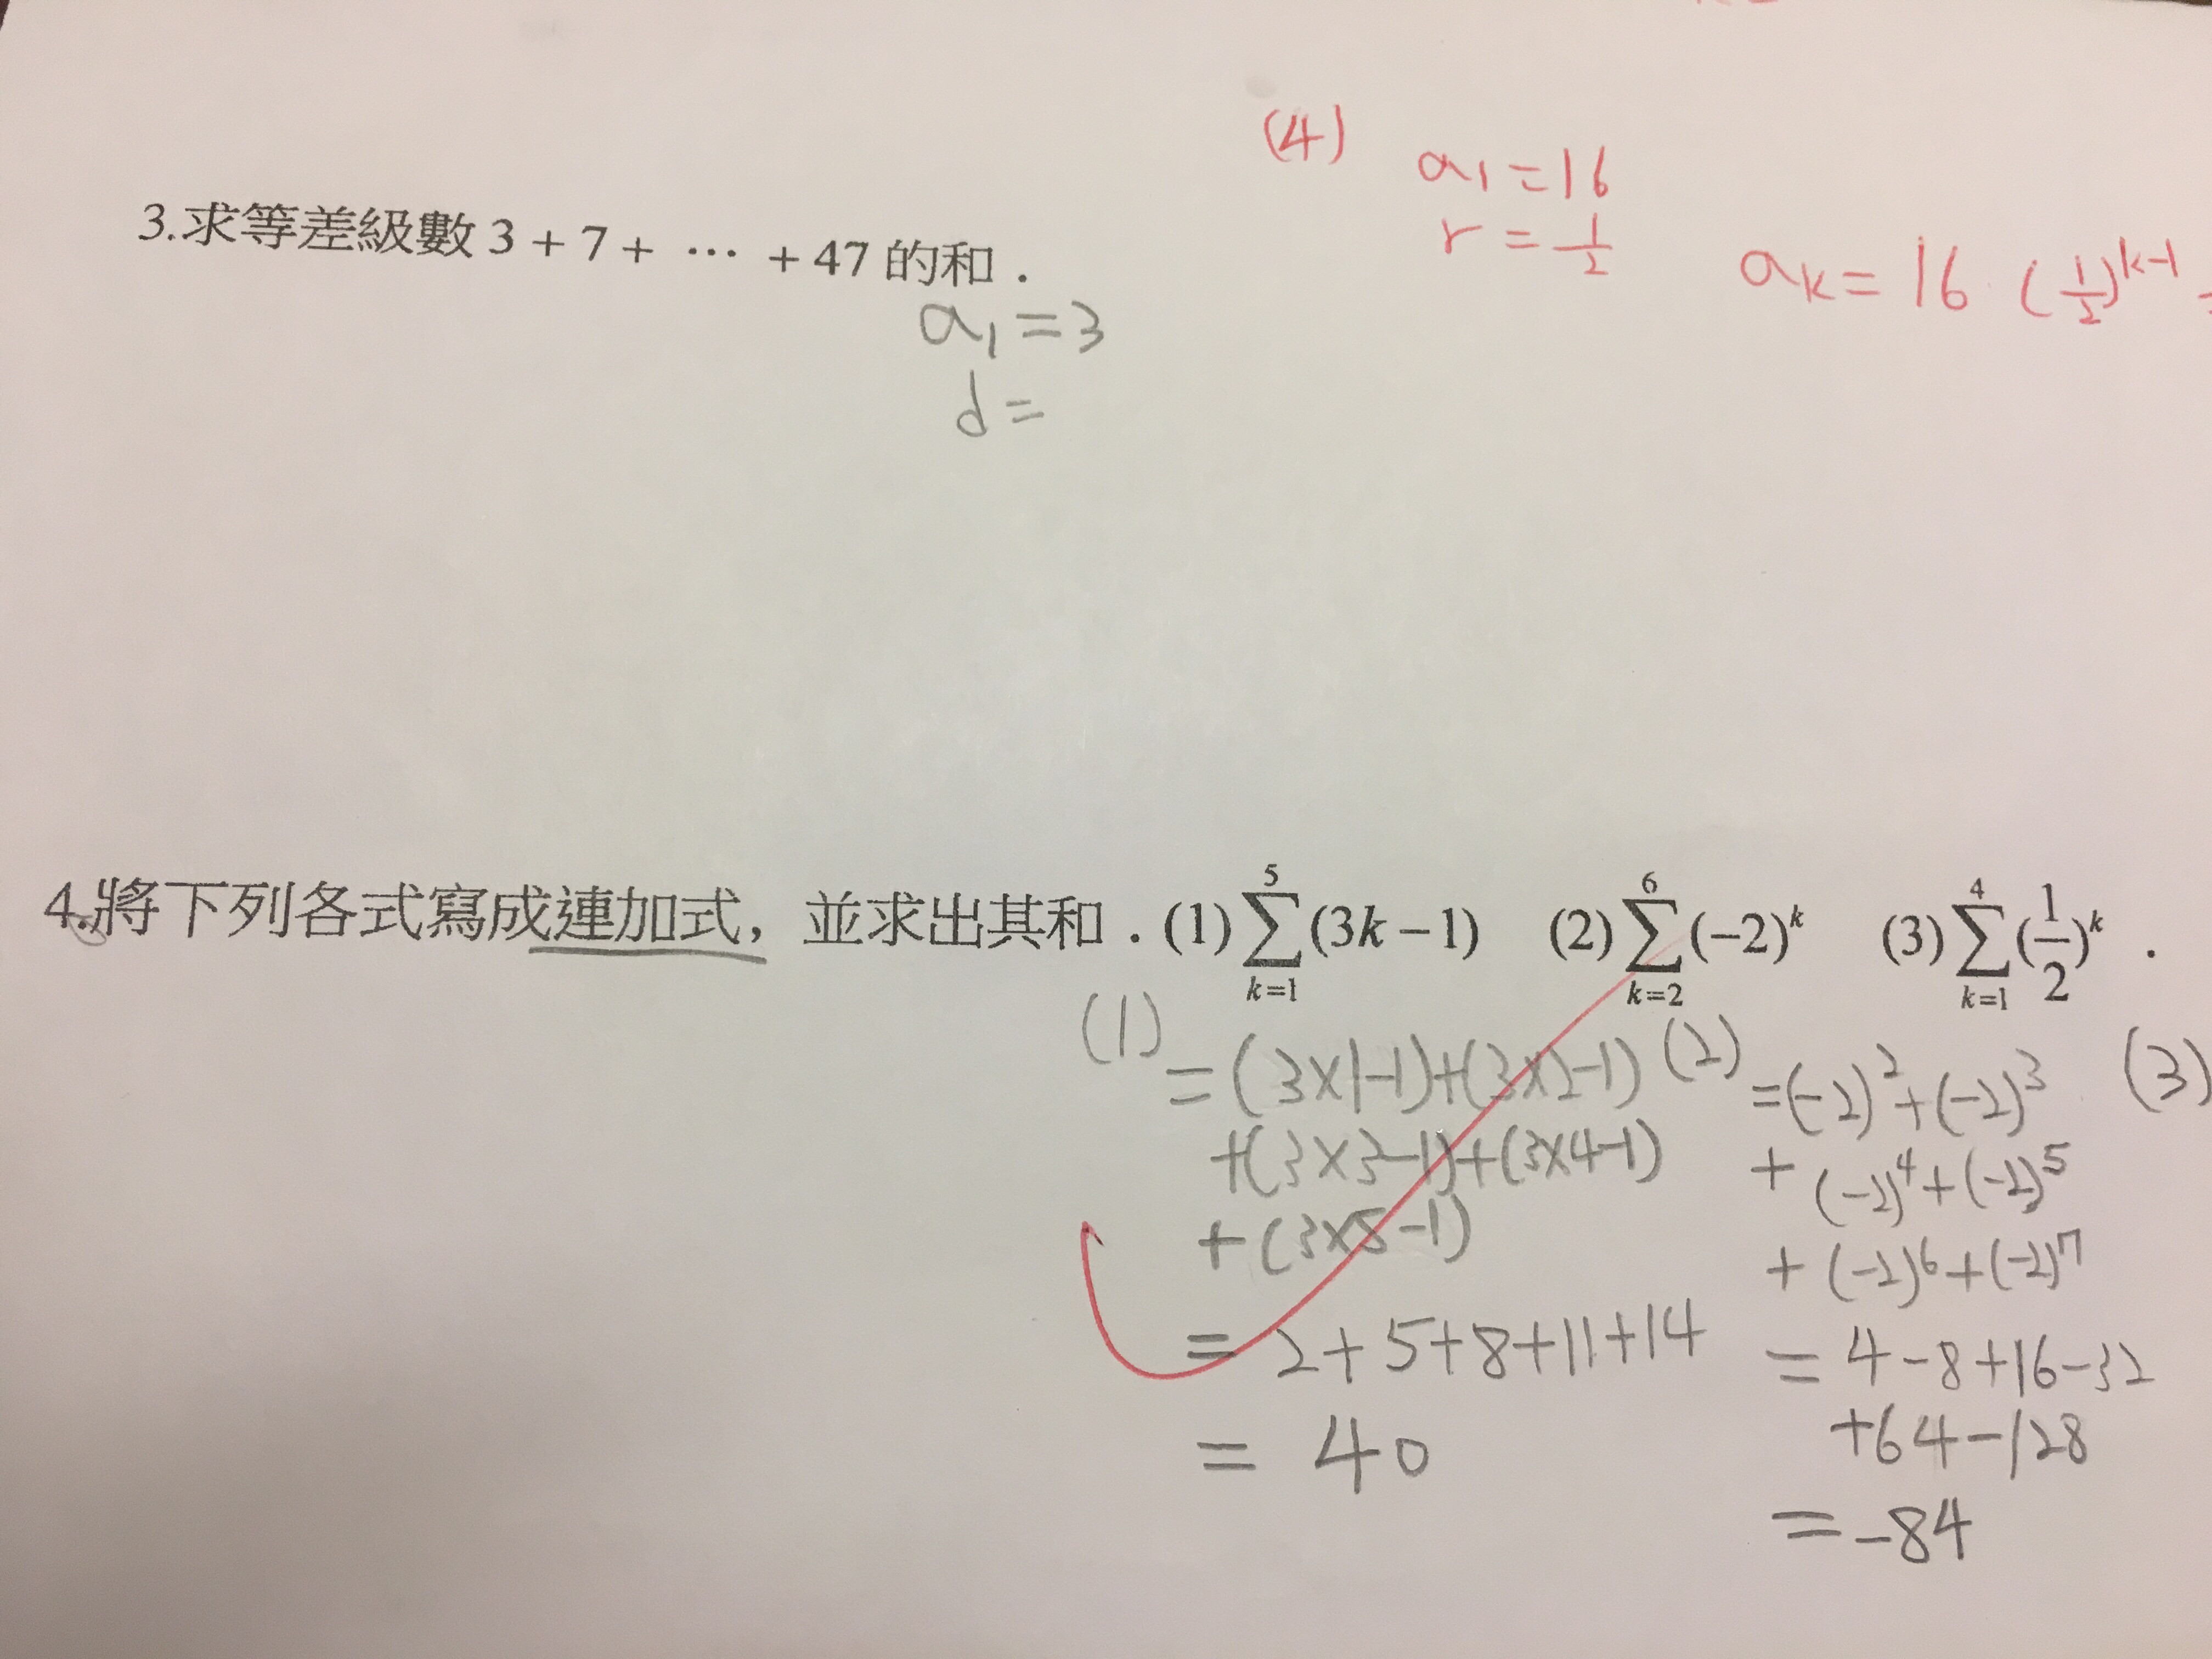 (4) a₁ = 16
r = 1/2
aₖ = 16 · (1/2)^(k-1)
3.求等差級數 3 + 7 + ⋯ + 47 的和．
a₁ = 3
d =
4.將下列各式寫成連加式，並求出其和．(1) ∑_{k=1}^{5} (3k − 1) (2) ∑_{k=2}^{6} (−2)^k (3) ∑_{k=1}^{4} (1/2)^k ．
(1) = (3×1-1)+(3×2-1)
+(3×3-1)+(3×4-1)
+(3×5-1)
= 2+5+8+11+14
= 40
(2) = (-2)^2+(-2)^3
+(-2)^4+(-2)^5
+(-2)^6+(-2)^7
= 4-8+16-32
+64-128
= -84
(3)